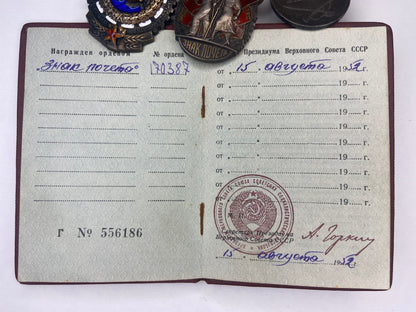 ЗНАК ПОЧЕТА
Награжден орденом
№ ордена
Президиума Верховного Совета СССР
"Знак почета"
170387
от 15. августа 1952 г.
от 19 г.
от 19 г.
от 19 г.
от 19 г.
от 19 г.
от 19 г.
от 19 г.
Г № 556186
М. П.
Секретарь Президиума
Верховного Совета СССР
А. Горкин
15. августа 1952 г.